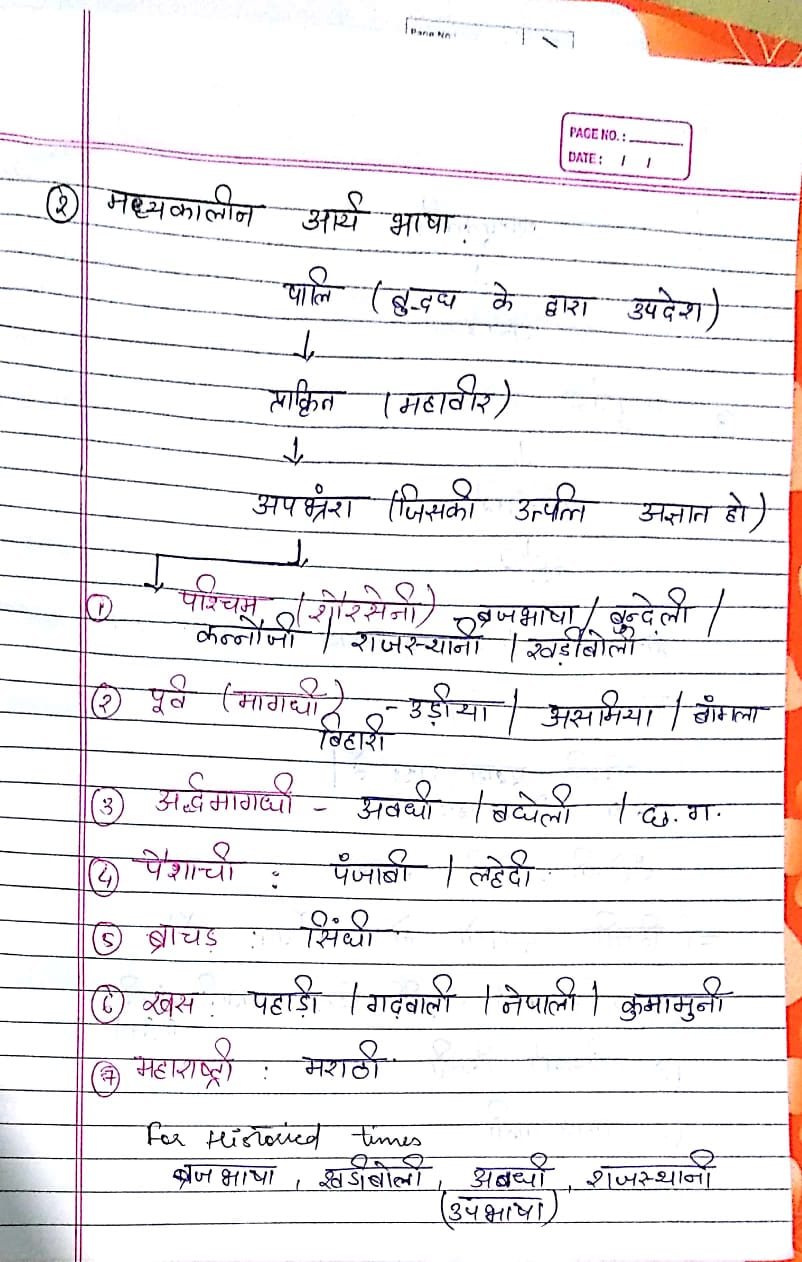 Page No :
PAGE NO. :
DATE : / /
② मध्यकालीन आर्य भाषा :
पालि (बुद्दध के द्वारा उपदेश)
↓
प्राक्रित (महावीर)
↓
अपभ्रंश (जिसकी उत्पत्ति अज्ञात हो)
① पश्चिम (शौरसेनी) - ब्रजभाषा / बुन्देली /
कन्नौजी / राजस्थानी / खड़ीबोली
② पूर्व (मागधी) - उड़ीया / असमिया / बांगला
बिहारी
③ अर्द्धमागधी - अवधी / बघेली / छ. ग.
④ पैशाची : पंजाबी / लहेदी
⑤ ब्राचड़ : सिंधी
⑥ खस : पहाड़ी / गढ़वाली / नेपाली / कुमामुनी
⑦ महाराष्ट्री : मराठी
For Historied times
ब्रज भाषा , खडीबोली , अबधी , राजस्थानी
(उपभाषा)